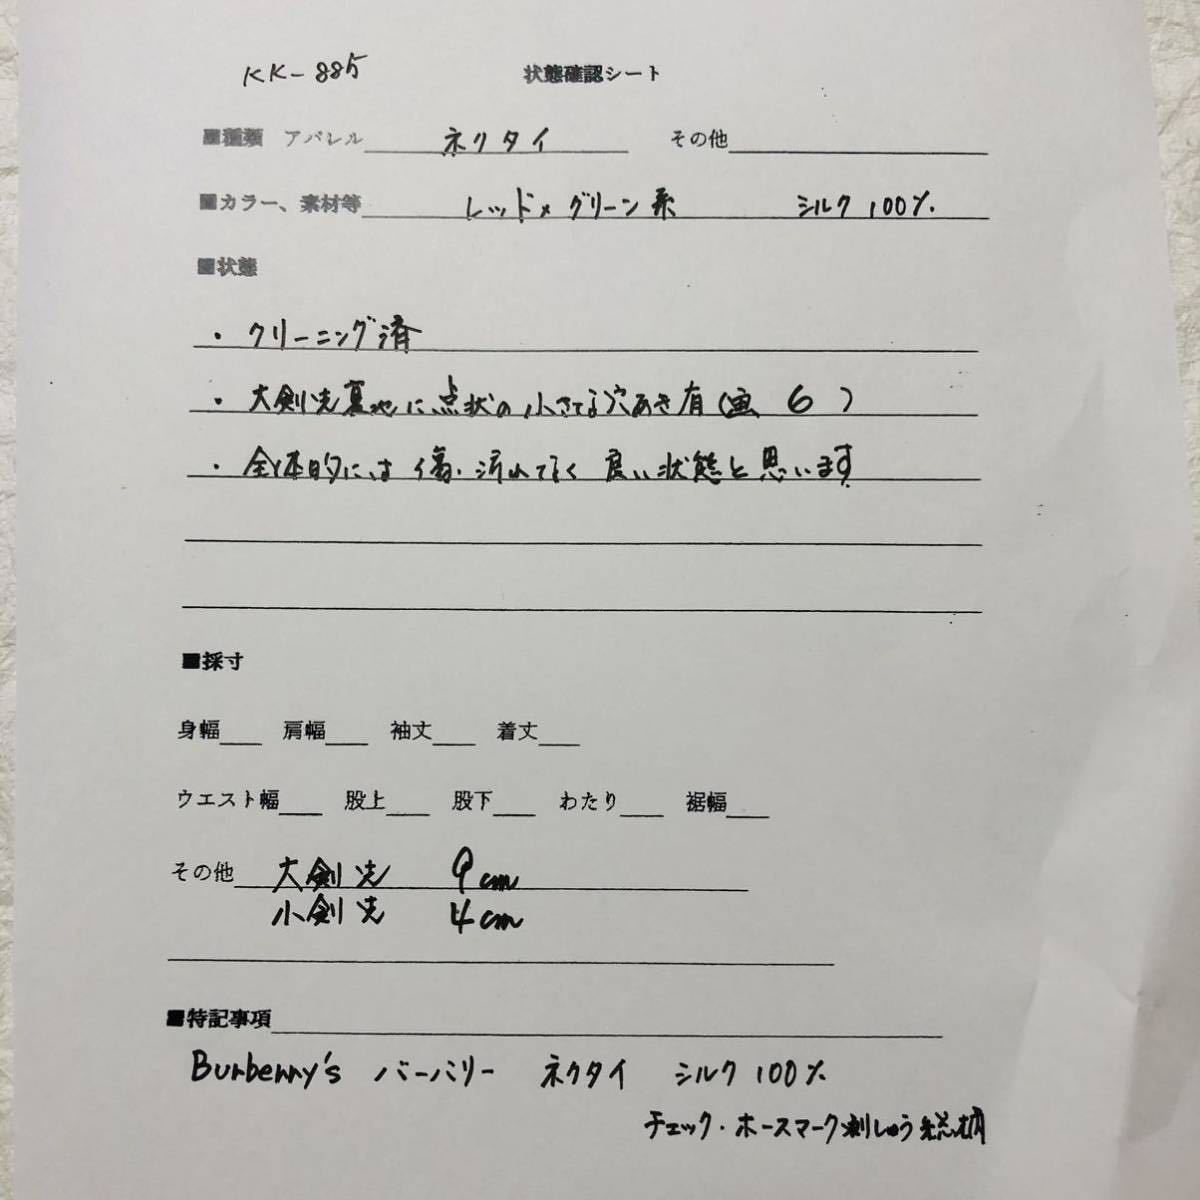 KK-885 状態確認シート
■種類 アパレル ネクタイ その他
■カラー、素材等 レッド×グリーン系 シルク100%
■状態
・クリーニング済
・大剣先裏地に点状の小さな穴あき有(画 6 )
・全体的には傷、汚れなく良い状態と思います
■採寸
身幅 肩幅 袖丈 着丈
ウエスト幅 股上 股下 わたり 裾幅
その他 大剣先 9cm
小剣先 4cm
■特記事項
Burberry's バーバリー ネクタイ シルク100%
チェック・ホースマーク刺しゅう総柄